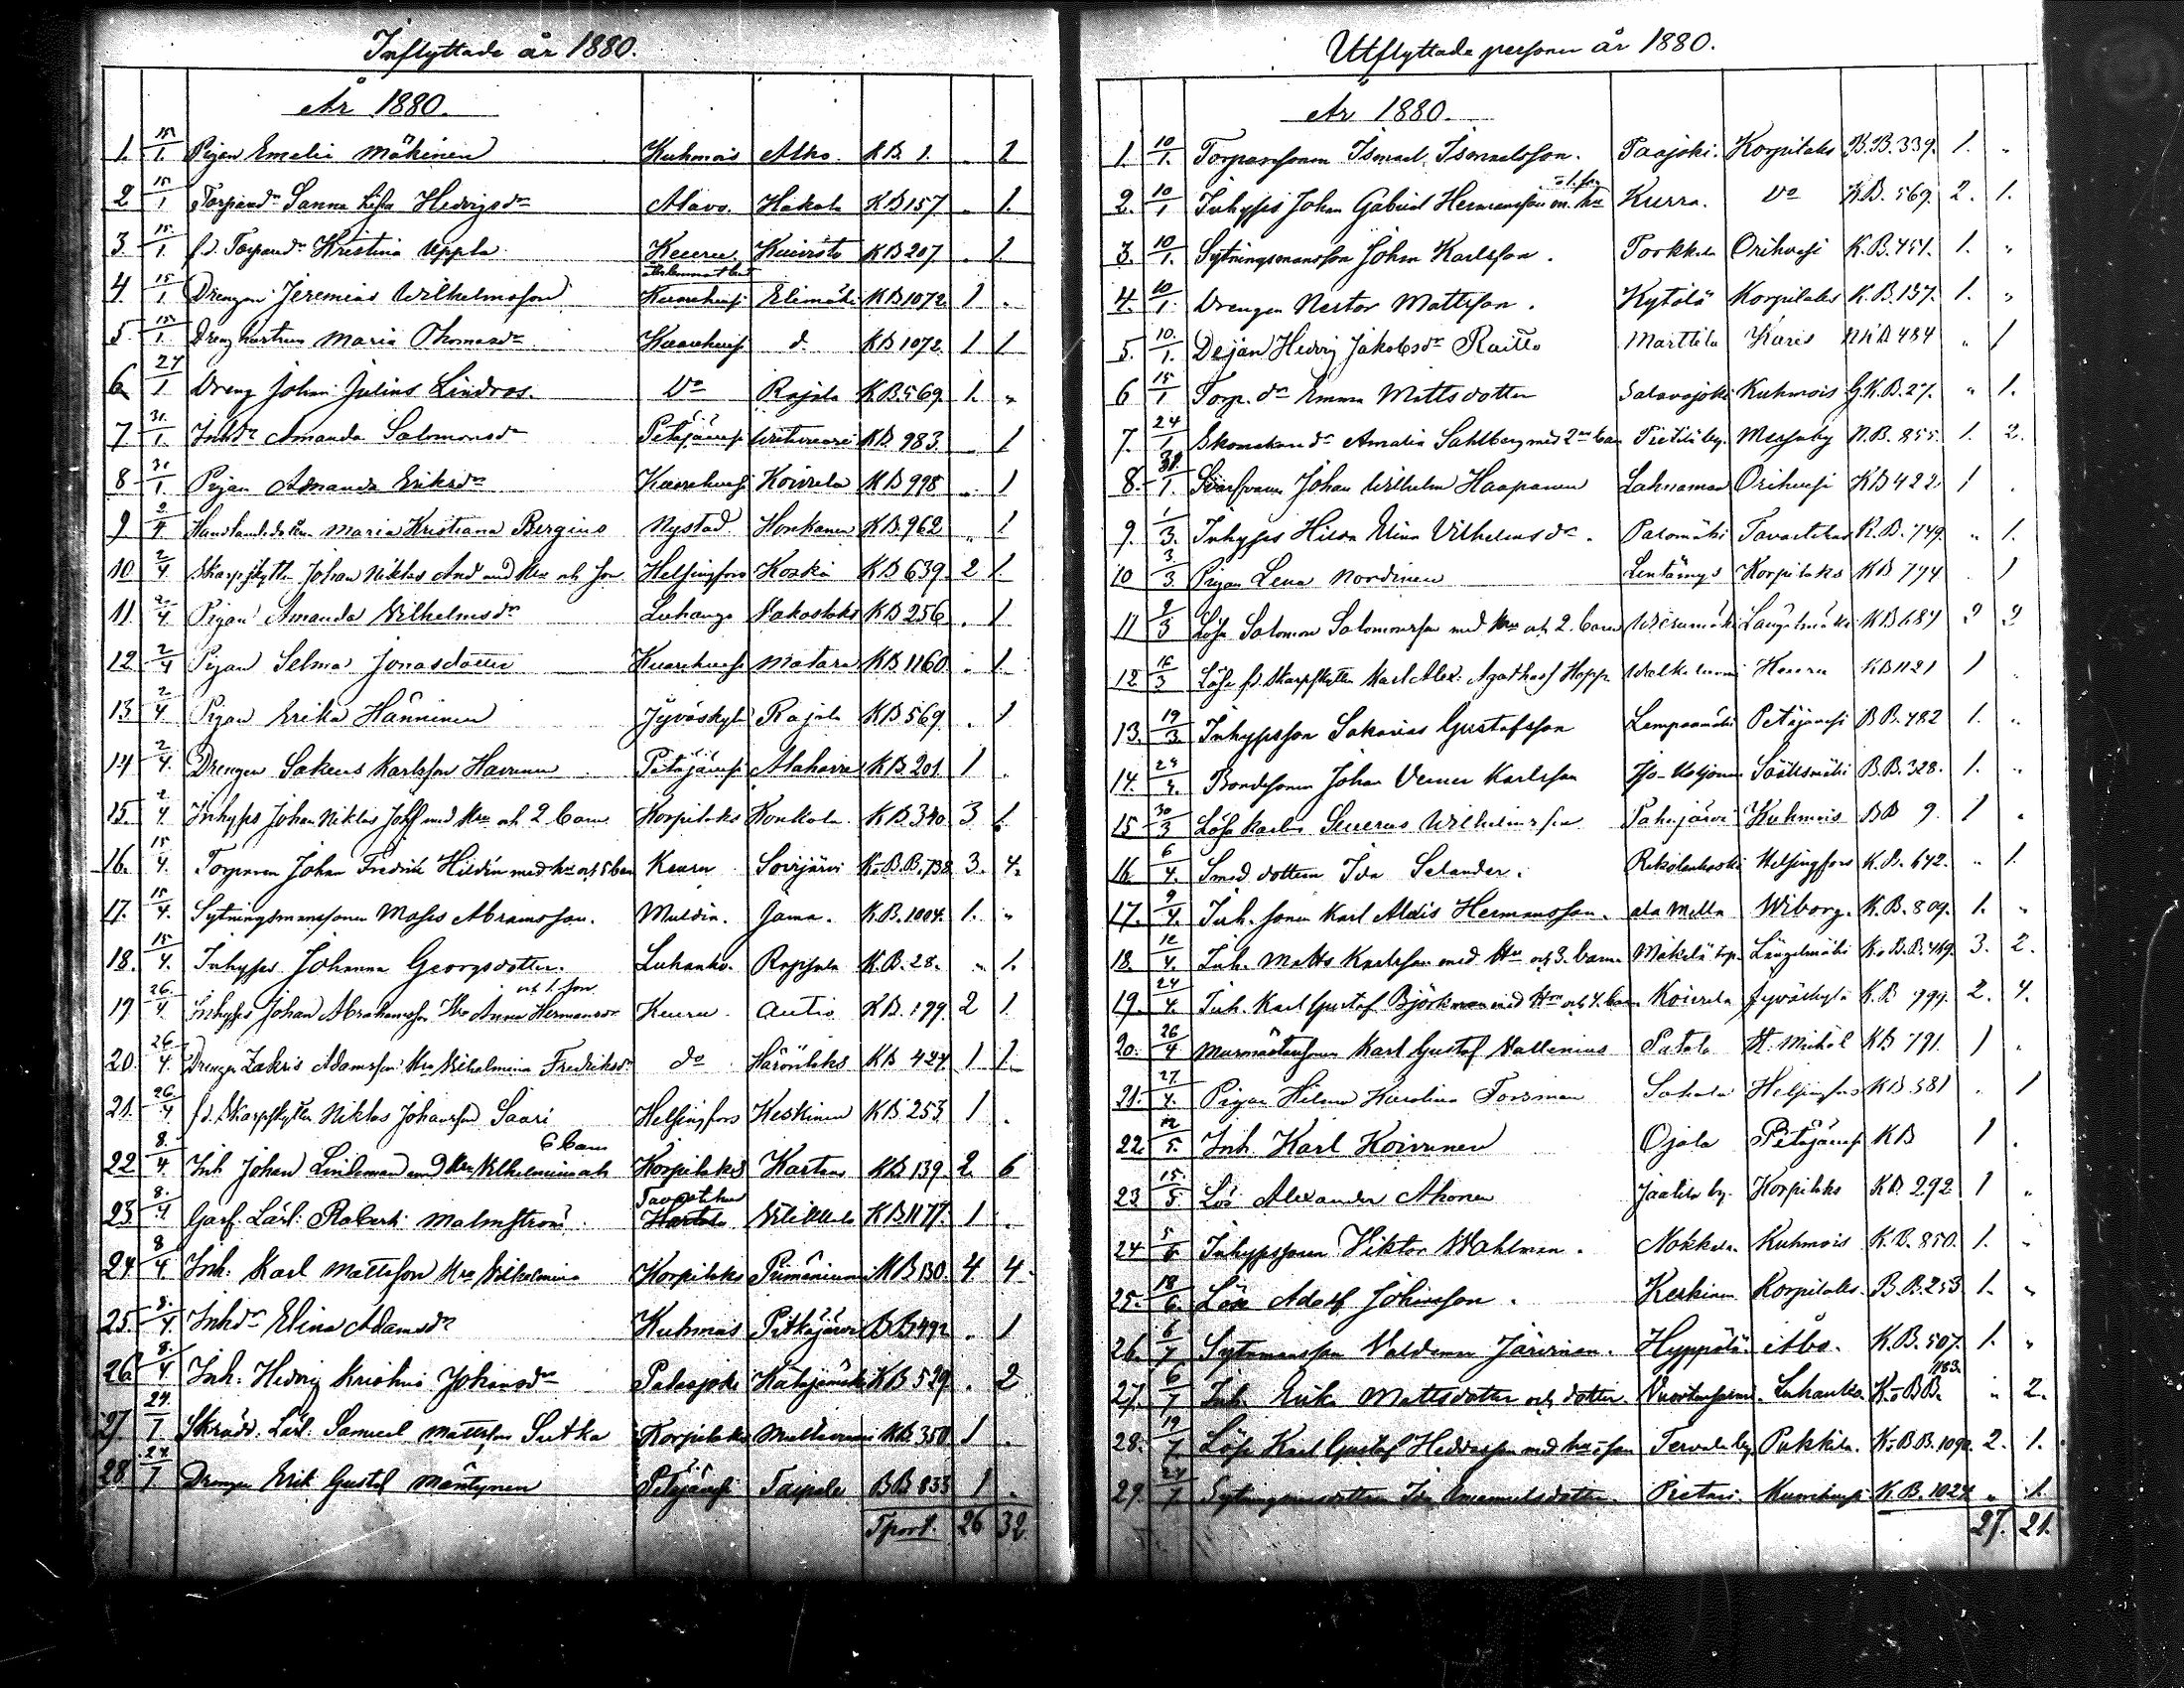 Inflyttade år 1880.
År 1880.
1. 15/1. Pigan Emelia Mäkinen Kuhmois Alho. KB. 1. „ 1
2 15/1 Torpared:r Sanna Lisa Hedvigsd:r Alavo. Hakola KB 157 „ 1.
3. 15/1. f.d. Torpared:r Kristina Uppla Keuru. KB 207 . 1
4 15/1 Drengen Jeremias Wilhelmsson Kuorehvesi Elimäki KB 1072. 1 „
5. 15/1. Dreng hustrun Maria Thomasd:r Kuorehvesi d. KB 1072. 1 1
6 27/1 Dreng Johan Julius Lindros. D:o Rajala KB. 569. 1. „
7 31./1. Inhd:r Amanda Salomonsd:r Petäjävesi KB. 983. „ 1
8 31/1. Pigan Amanda Eriksd:r Kuorehvesi Koivula KB 998 „ 1
9 2/4 Maria Kristiana Bergius Nystad Honkanen KB. 962 „ 1
10 2/4. Skarpskytte Johan Niklas And med Hu och son Helsingfors Koski KB 639. 2 1.
11. 2/4. Pigan Amanda Vilhelmsd:r Luhango KB 256 . 1
12 2/4 Pigan Selma Jonasdotter Kuorehvesi Matara KB 1160. „ 1.
13 2/4. Pigan Erika Hänninen Jyväskylä Rajala KB 569. . 1
14 2/4. Drengen Sakeus Karlsson Petäjävesi Alahavra KB. 201. 1 .
15. 2/4. Inhyss Johan Niklas med Hu och 2 barn Korpilaks Konkola. KB. 340. 3 1.
16. 15/4. Torparen Johan Fredrik Hildén med hu och 5 barn Keuru Sovijärvi K.B.B. 738. 3. 4.
17. 15/4. Sytningsmanssonen Moses Abramsson. Multia. Jama. K.B. 1004. 1. „
18. 15/4. Inhyss Johanna Georgsdotter. Luhanko. Rappula K.B. 28. „ 1.
och 1. son
19 26./4 Inhyss Johan Abrahamsson Hu Anna Hermansd:r Keuru Autio KB. 199. 2 1
20. 26./4. Drengen Zakris Adamsson Hu Vilhelmina Fredriksd:r d:o KB 424. 1 1.
21. 26./4 f.d. Skarpskytten Niklas Johansson Saari Helsingfors Keskinen KB 253 1 .
6 barn
22 8./4. Inh Johan Lindeman med Hu Vilhelmina och Korpilaks KB. 139. 2. 6
Tavastehus
23 8./4 Garf. Lärl. Robert Malmström. KB. 1177. 1 .
24 8/4 Inh: Karl Mattsson Hu Vilhelmina Korpilaks KB 130. 4 4.
25. 8./4. Inhd:r Elina Adamsd:r Kuhmois Pitkäjärvi BB 492 . 1
26. 8./4 Inh: Hedvig Kristina Johansd:r Padasjoki KB 529. . 2
27 24./7 Skräd. Lärl. Samuel Mattsson Sutka Korpilaks KB. 350 1 .
28. 24/7 Drengen Erik Gustaf Mäntynen Petäjävesi Taipale BB 833 1 .
Tport. 26 32.
Utflyttade personer år 1880.
År 1880.
1. 10/1. Torparesonen Ismael Ismaelsson. Taajoki. Korpilaks B.B. 339. 1. „
o 1. son
2. 10/1 Inhyss Johan Gabriel Hermansson m. hu Kurra. D:o K.B. 569. 2. 1.
3. 10/1. Sytningsmansson Johan Karlsson. Torkkela Orihvesi K.B. 451. 1. „
4. 10/1. Drengen Nestor Mattsson. Kytölä Korpilaks K.B. 137. 1. „
5. 10./1. Dejan Hedvig Jakobsd:r Raitto Marttila Karis KB 484 „ 1
6 15/1 Torp. d:r Emma Mattsdotter Salavajoki Kuhmois G.K.B. 27. „ 1.
7. 24/1 Skomakared:r Amalia Sahlberg med 2:ne barn Pietilä by. Messuby K.B. 855. 1. 2.
8. 31./1. Johan Wilhelm Haapanen Lahnaman Orihvesi KB 422. 1 .
9. 1/3. Inhyss Hilda Elina Vilhelmsd:r. Palomäki Tavastehus K.B. 749. „ 1.
10 3./3. Pigan Lena Nordinen Korpilaks KB 774 . 1
11 9/3 Löse Salomon Salomonsson med Hu och 2. barn Längelmäki KB 684 2 2
12 16/3 Löse f.d. Skarpskytten Karl Alex: Keuru KB 1121 1 .
13. 19/3. Inhyssson Sakarias Gustafsson Petäjävesi BB. 482 1. „
14. 23/3. Bondesonen Johan Verner Karlsson Sääksmäki B.B. 328. 1. „
15 30/3 Löse karlen Severus Wilhelmsson Pahajärvi Kuhmois BB 9. 1 „
16. 6/4. Smed dottern Ida Selander. Helsingfors K.B. 642. „ 1.
17. 9/4. Inh. sonen Karl Aldis Hermansson. ala Mella Wiborg. K.B. 809. 1. „
18. 12/4. Inh. Matts Karlsson med Hu och 3. barn. Mäkelä torp. Längelmäki K.o B.B. 469. 3. 2.
19. 24/4. Inh. Karl Gustaf Björkman med Hu och 4. barn Koivula Jyväskylä K.B 997. 2. 4.
20. 26/4 Murmästaresonen Karl Gustaf Vallenius Patola St. Mickel KB 791. 1 .
21. 27/4. Pigan Hilma Karolina Forsman Sahala Helsingfors KB 581 . 1
22. 12/5. Inh. Karl Koivunen Ojala Petäjävesi KB 1 .
23 15./5. Lös Alexander Ahonen Jaakola by. Korpilaks KB. 292. 1 „
24 5/6 Inhyssonen Viktor Wahlman. Nokkala. Kuhmois K.B. 850. 1. „
25. 18/6. Löse Adolf Johansson. Keskinen Korpilaks. B.B. 253 1. „
26. 6/7 Sytnmansson Valdemar Järvinen. Hyppölä Åbo. K.B. 507. 1. „
183.
27. 6/7 Inh. Erika Mattsdotter och dotter Luhanko. K.o BB. „ 2.
28. 19/7 Löse Karl Gustaf med hu o son Tervala by. Pukkila. K.o B.B. 1090. 2. 1.
29. 24/7 Sytningsmansdottern Ida Emanuelsdotter. Pietari. Kuorehvesi K.B. 1024. „ 1.
27. 21.